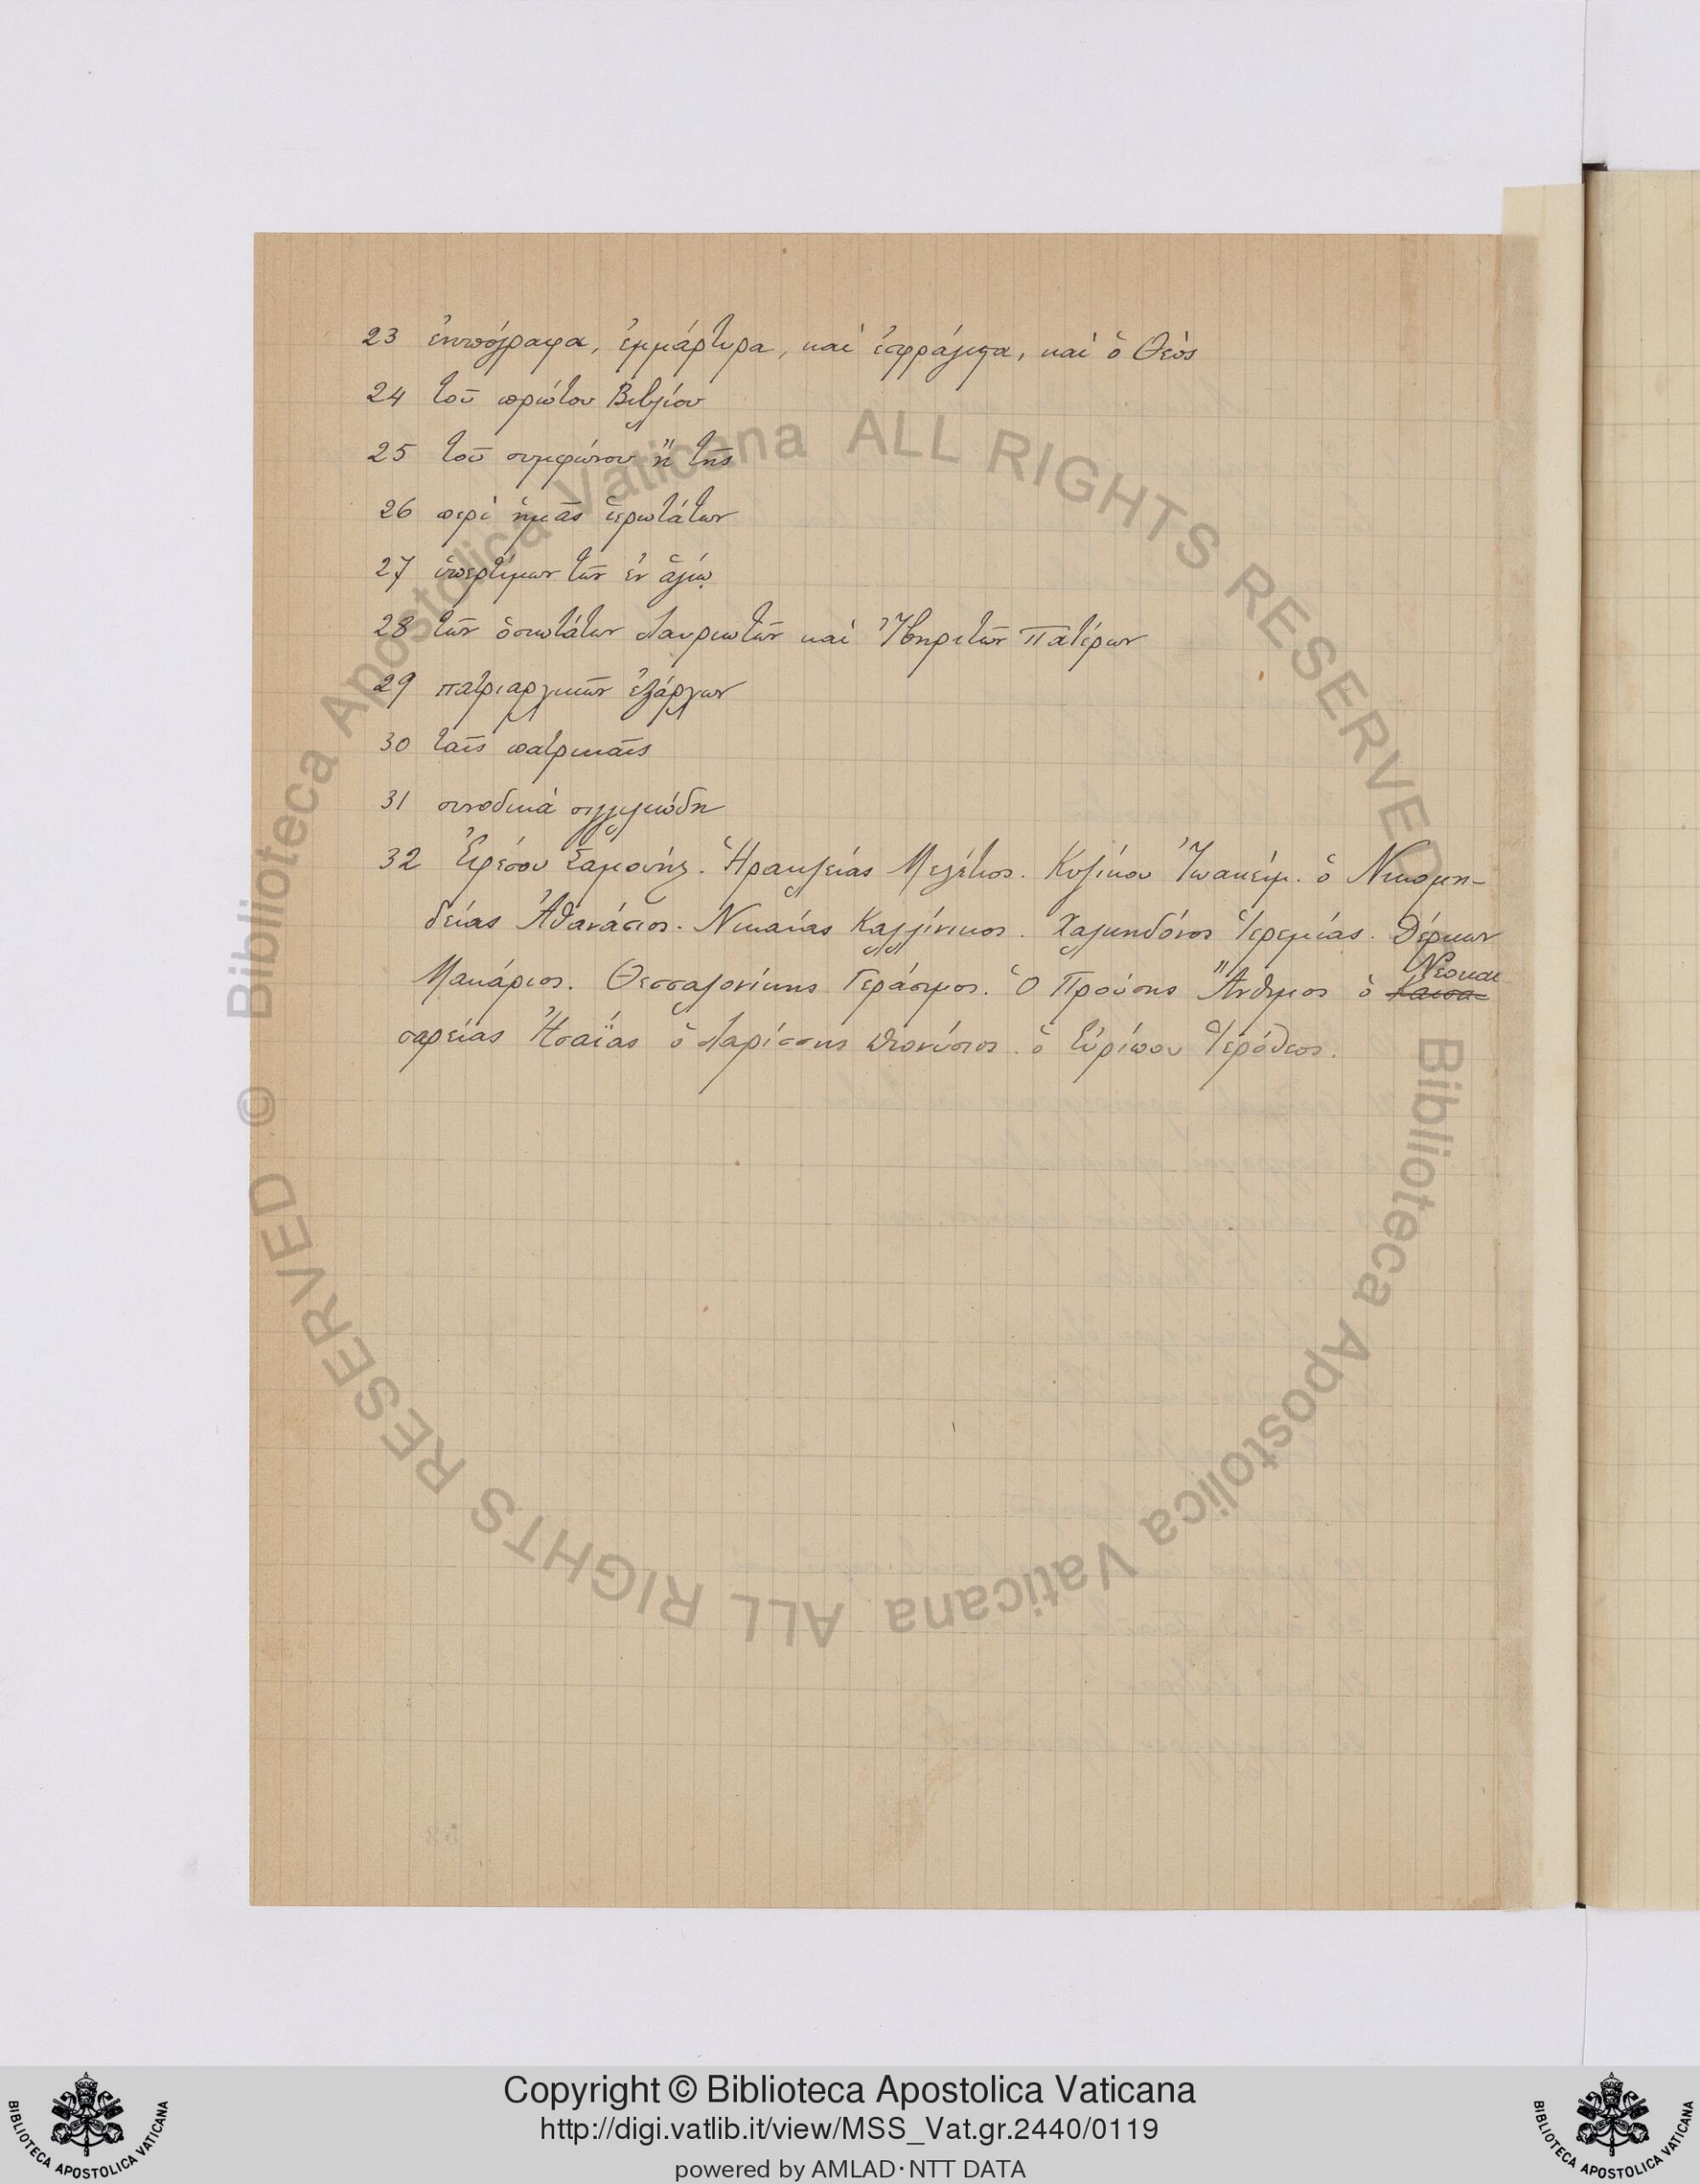 23 ἐνυπόγραφα, ἐμμάρτυρα, καὶ ἐσφράγιστα, καὶ ὁ Θεὸς
24 τοῦ πρώτου Βιβλίου
25 τοῦ συμφώνου ἢ τῆς
26 περὶ ἡμᾶς ἱερωτάτων
27 ὑπερτίμων τῶν ἐν ἁγίῳ
28 τῶν ὁσιωτάτων Λαυριωτῶν καὶ Ἰβηριτῶν Πατέρων
29 πατριαρχικῶν ἐξάρχων
30 ταῖς πατρικαῖς
31 συνοδικὰ σιγγιλιώδη
32 Ἐφέσου Σαμουήλ. Ἡρακλείας Μελέτιος. Κυζίκου Ἰωακείμ. ὁ Νικομη-
δείας Ἀθανάσιος. Νικαίας Καλλίνικος. Χαλκηδόνος Ἱερεμίας. Δέρκων
Μακάριος. Θεσσαλονίκης Γεράσιμος. Ὁ Προύσης Ἄνθιμος ὁ Καισα- Νεοκαι
σαρείας Ἠσαΐας ὁ Λαρίσσης Διονύσιος. ὁ Εὐρίπου Ἱερόθεος.
© Biblioteca Apostolica Vaticana ALL RIGHTS RESERVED
Biblioteca Apostolica Vaticana ALL RIGHTS RESERVED
Copyright © Biblioteca Apostolica Vaticana
http://digi.vatlib.it/view/MSS_Vat.gr.2440/0119
powered by AMLAD·NTT DATA
BIBLIOTECA APOSTOLICA VATICANA
BIBLIOTECA APOSTOLICA VATICANA